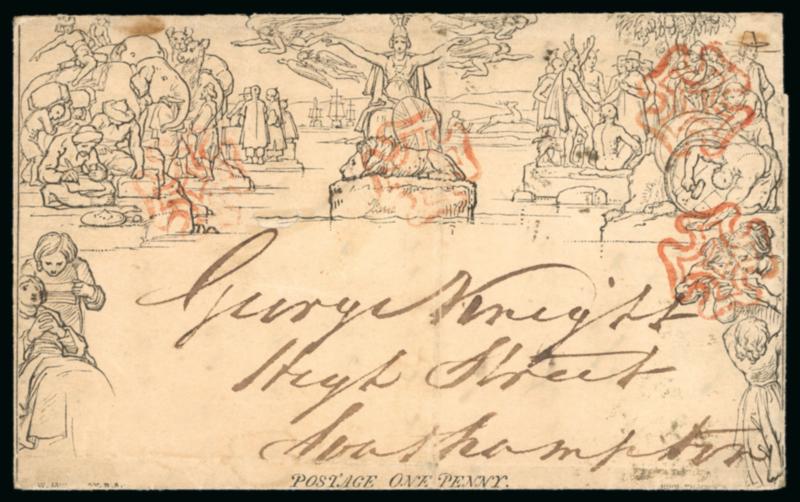 George Knight
High Street
Southampton
POSTAGE ONE PENNY.